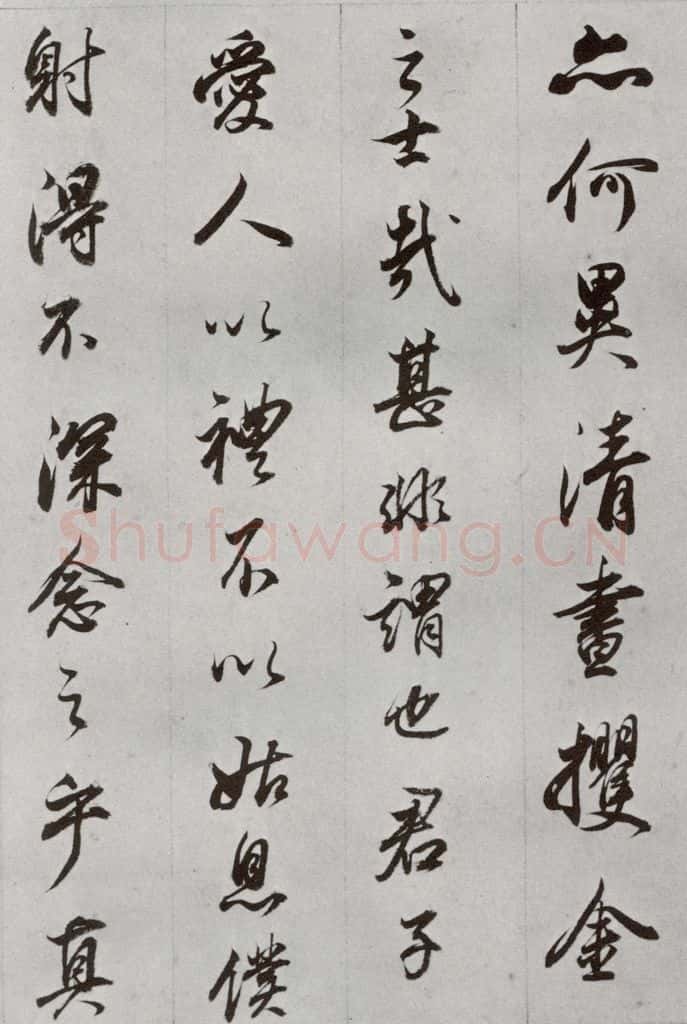 亦何異清晝攫金
之士哉甚非謂也君子
愛人以禮不以姑息僕
射得不深念之乎真
Shufawang.CN